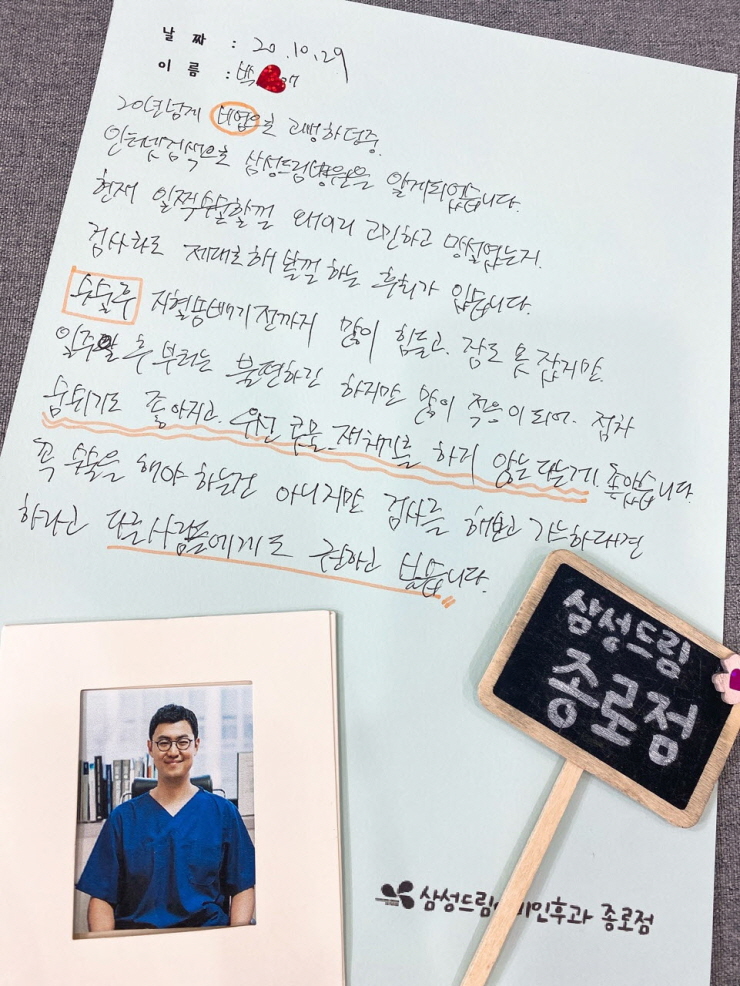 날 짜 : 20.10.29
이 름 : 박
20년넘게 비염으로 고생하던중.
인터넷검색으로 삼성드림병원을 알게되었습니다.
현재 일찍수술할껄 왜이리 고민하고 망설였는지.
검사라도 제대로해 볼껄 하는 후회가 있습니다.
수술후 지혈솜빼기전까지 많이 힘들고. 잠도 못 잤지만.
일주일 후 부터는 불편하긴 하지만 많이 적응이 되어. 점차
숨쉬기도 좋아지고. 우선 콧물.재채기를 하지 않는 다는게. 좋았습니다.
꼭 수술을 해야 하는건 아니지만 검사를 해보고 가능하다면
하라고 다른사람들에게도 권하고 싶습니다.
삼성드림
종로점
삼성드림 비인후과 종로점